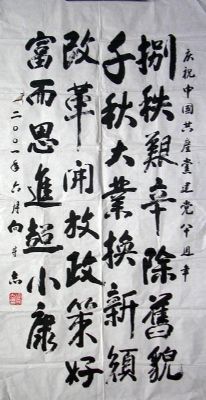 庆祝中国共産党建党八十週年
捌秩艱辛除舊貌
千秋大業換新顔
改革開放政策好
富而思進超小康
二〇〇一年六月向